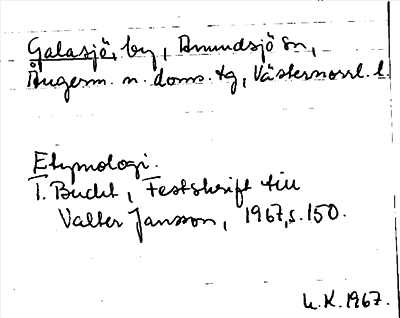 Galasjö, by, Anundsjö sn,
Ångerm. n. doms. tg, Västernorrl. l.
Etymologi.
T. Bucht, Festskrift till
Valter Jansson, 1967, s. 150.
L.K. 1967.